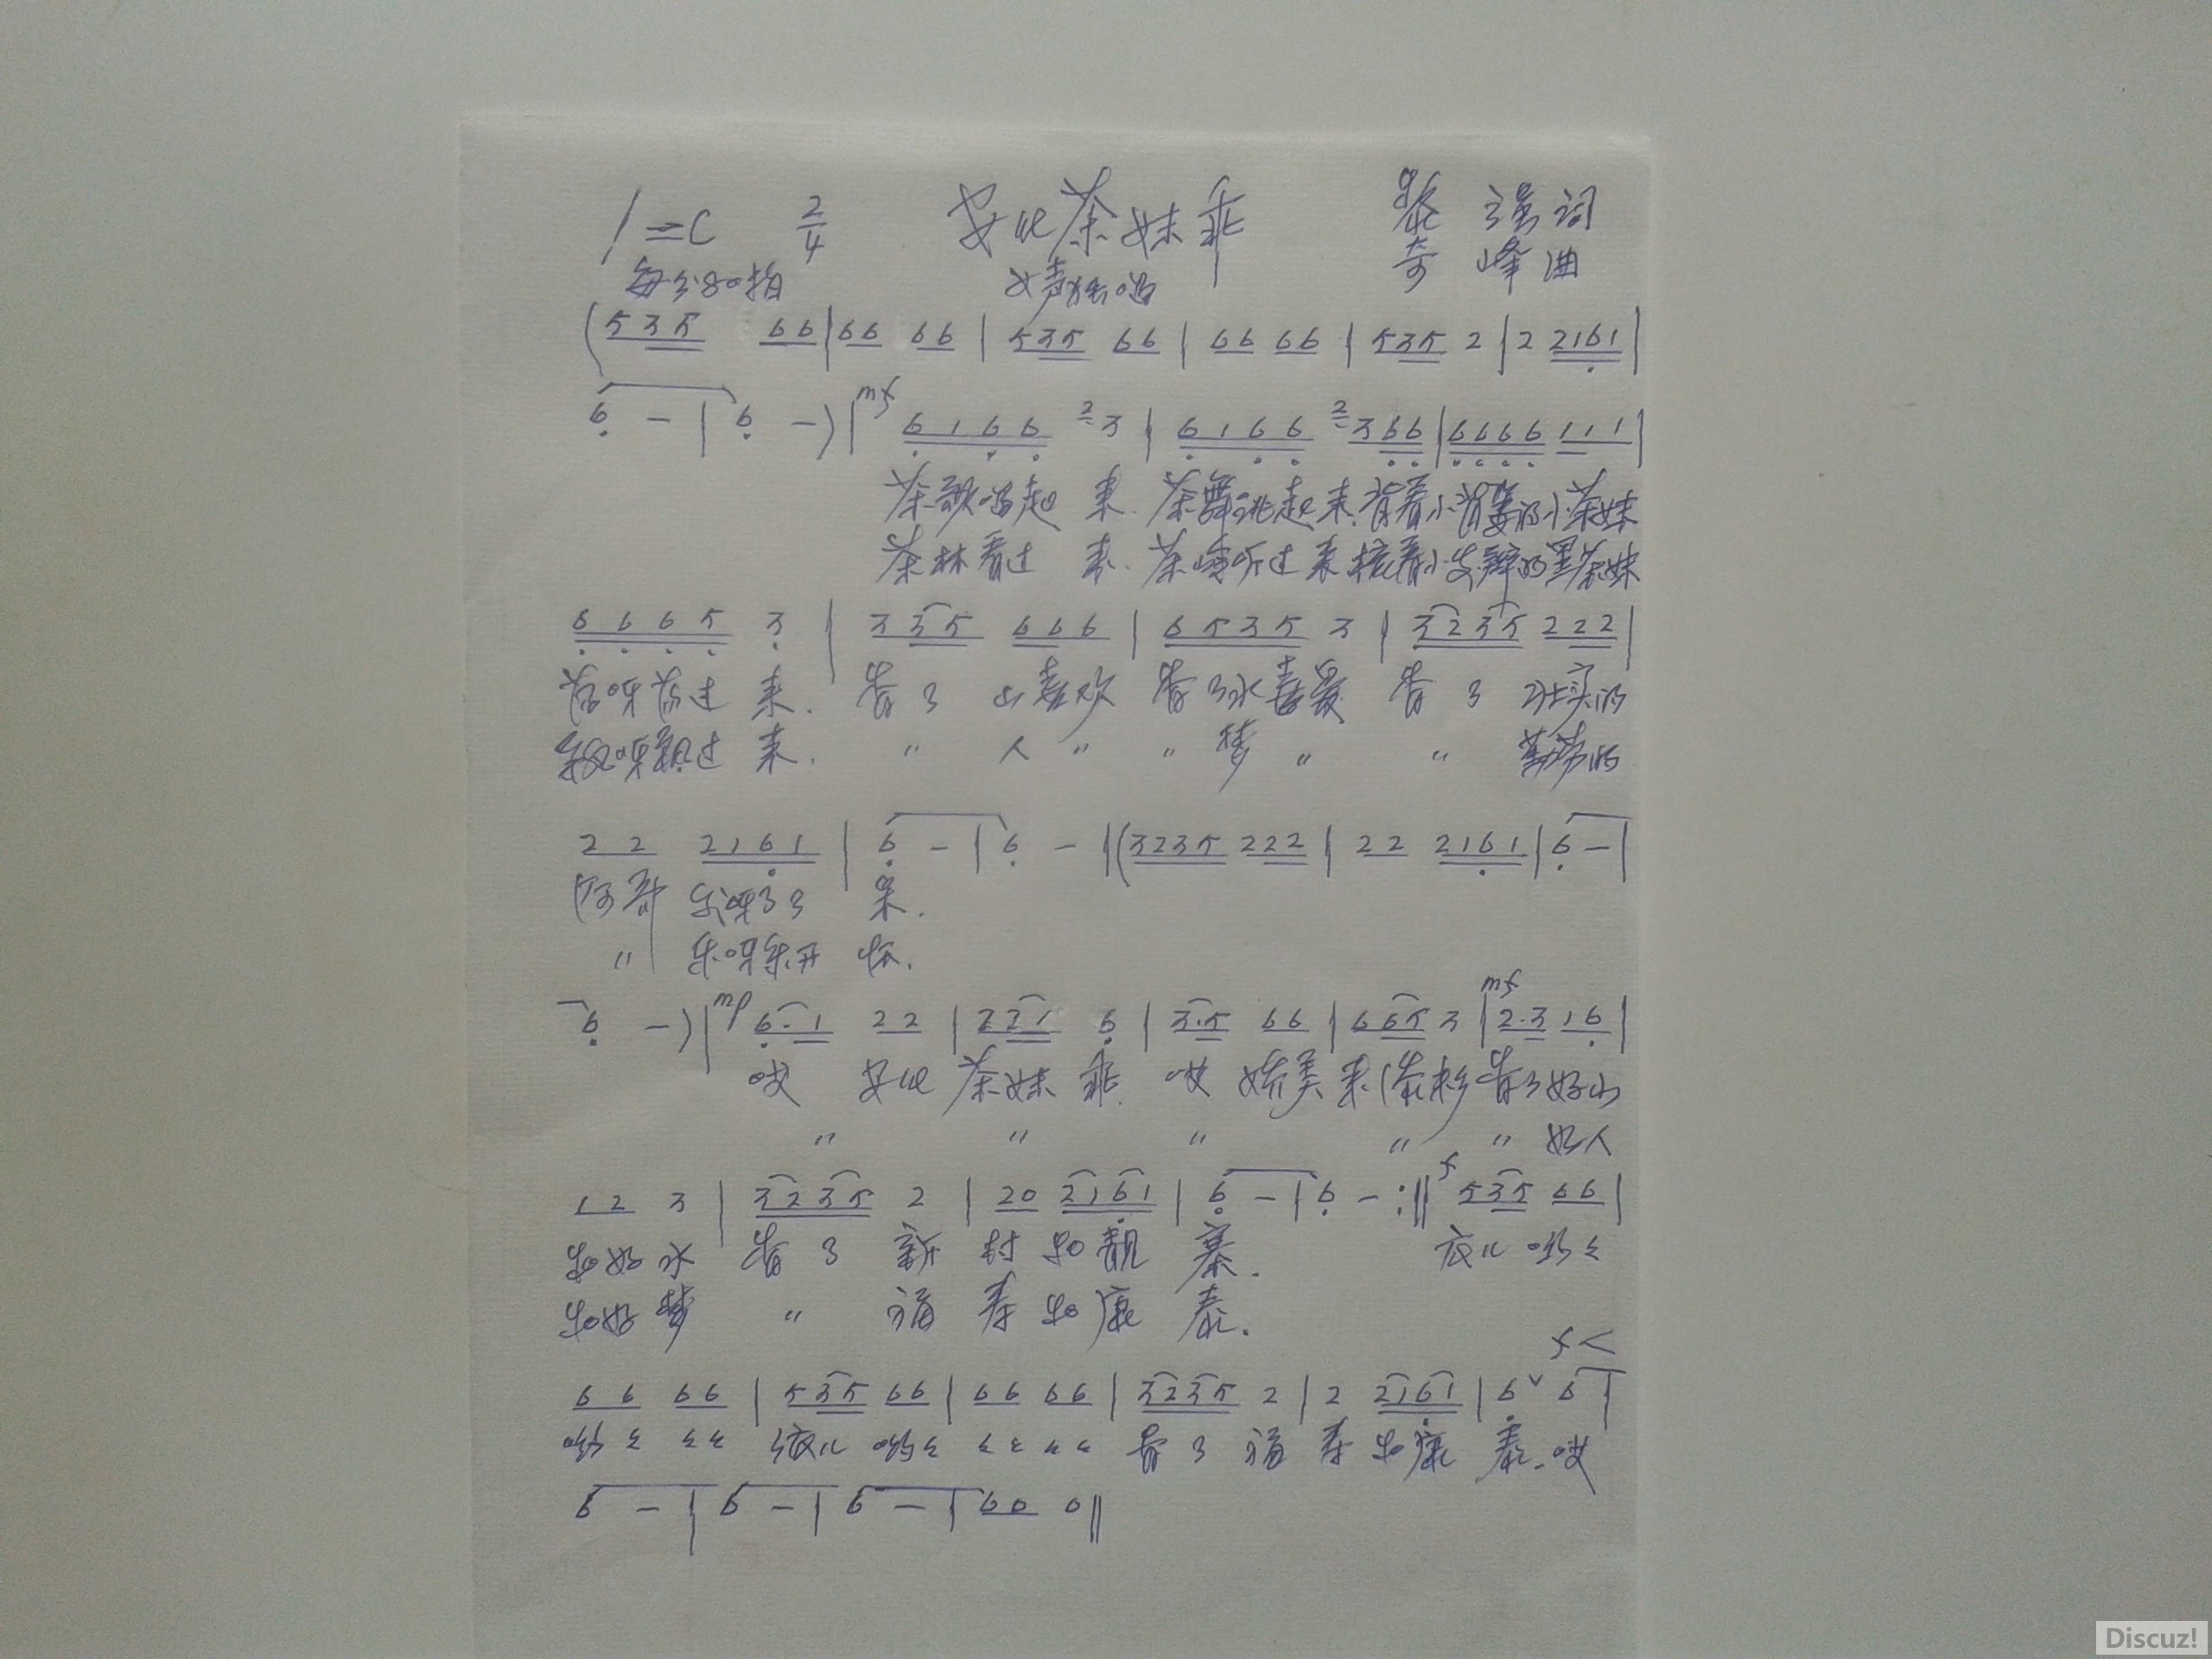 1=C 2/4 安化茶妹乖 词
每分80拍 女声独唱 奇峰曲
(535 66|66 66|535 66|66 66|535 2|2 2161|
6 -|6 -)|mf 6166 2 3|6166 2 366|6666 111|
茶歌唱起来.茶舞跳起来.背着小背篓的小茶妹
茶林看过来.茶 听过来 着小 辫的黑茶妹
6665 3|335 666|6535 3|3235 222|
呀 过来. 了山喜欢 了水喜爱 了 的
呀 过来. " 人 " " 梦 " " 勤劳的
22 2161|6 -|6 -|(3235 222|22 2161|6 -|
阿哥 乐呀 来.
" 乐呀乐开怀.
6 -)|mp 6·1 22|221 6|3·5 66|665 3|mf 2·3 16|
哎 安化茶妹乖.哎 娇美来 了好山
" " " " " 好人
12 3|3235 2|20 2161|6 -|6 -:‖f 535 66|
和好水 了新村和靓寨.
和好梦 " 福寿和康泰.
f<
66 66|535 66|66 66|3235 2|2 2161|6 ∨ 6|
了福寿和康泰.哎
6 -|6 -|6 -|60 0‖
Discuz!